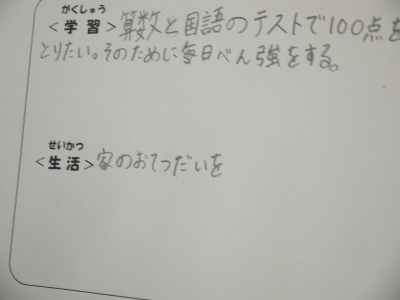 がくしゅう
<学習>算数と国語のテストで100点を
とりたい。そのために毎日べん強をする。
せいかつ
<生活>家のおてつだいを